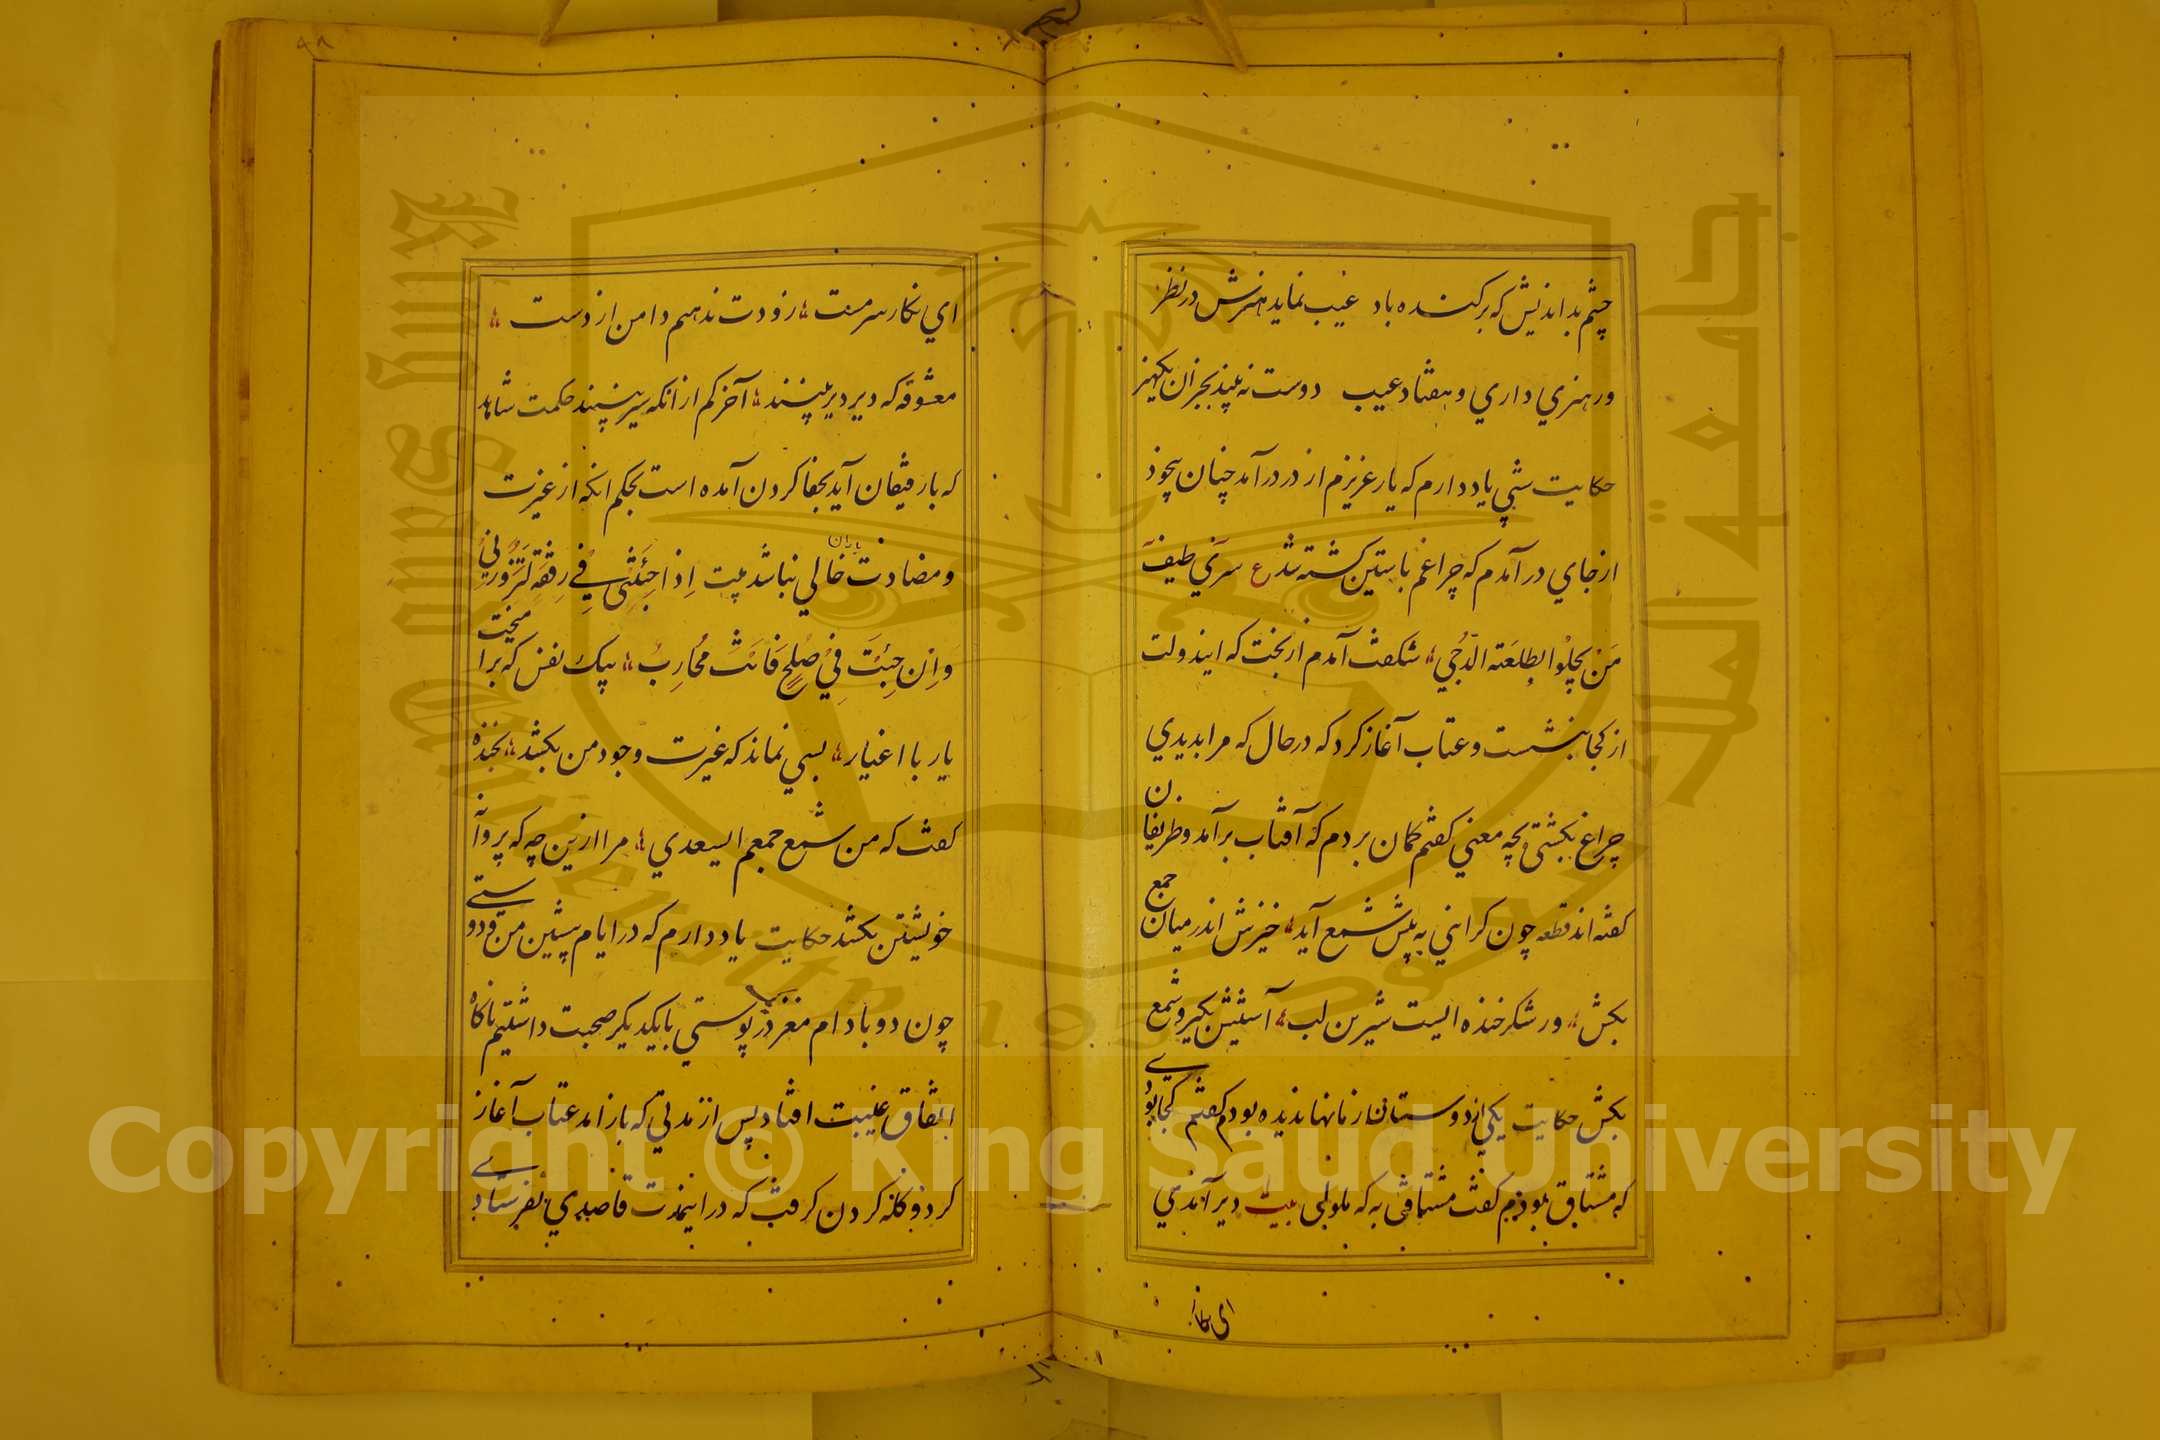 چشم بد اندیش که برکنده باد عیب نماید هنرش در نظر
ور هنري داري و هفتاد عیب دوست نه بیند بجز ان یکهنر
حکایت شبي یاد دارم که یار عزیزم از در درآمد چنان بیخود
از جاي درآمدم که چراغم باستین کشته شد ع سرَي طیفَ
مَن یجلُوا بطلعته الدُجي شکفت آمدم از بختم که ایندولت
از کجا بنشست و عتاب آغاز کرد که در حال که مرا بدیدي
چراغ بکشتي بچه معني کفتم کمان بردم که آفتاب برآمد و ظریفان
کفته اند قطعه چون کراني به پیش شمع آید خیزش اندر میان جمع
بکش ور شکر خنده ایست شیرین لب آستینش بکیر و شمع
بکش حکایت یکي از دوستان زمانها ندیده بودم کفتم کجا بودي
که مشتاق بودم کفت مشتاقي به که ملولی بیت دیر آمدي
اي نکار
٩٨
اي نکار سرمست زودت ندهم دامن از دست
معشوقه که دیر دیر بینند آخر کم از انکه سیر بینند حکمت شاهد
که با رفیقان آید بجفا کردن آمده است بحکم انکه از غیرت
و مضادت یاران خالي نباشد بیت اِذا جِئتَني فِي رِفقَةٍ لِتَزُورَنِي
وَ اِن جِئتَ فِي صُلحٍ فَانتَ مُحارِبُ بیک نفس که برامیخت
یار با اغیار بسي نماند که غیرت وجود من بکشد بخنده
کفت که من شمع جمعم ای سعدي مرا ازین چه که پروانه
خویشتن بکشد حکایت یاد دارم که در ایام پیشین من و دوستي
چون دو بادام مغز در یک پوستي با یکدیکر صحبت داشتیم ناکاه
اتفاق غیبت افتاد پس از مدتي که باز امد عتاب آغاز
کرد و کله کردن کرفت که در اینمدت قاصدي نفرستادي
Copyright © King Saud University
جامعة الملك سعود
King Saud University 1957